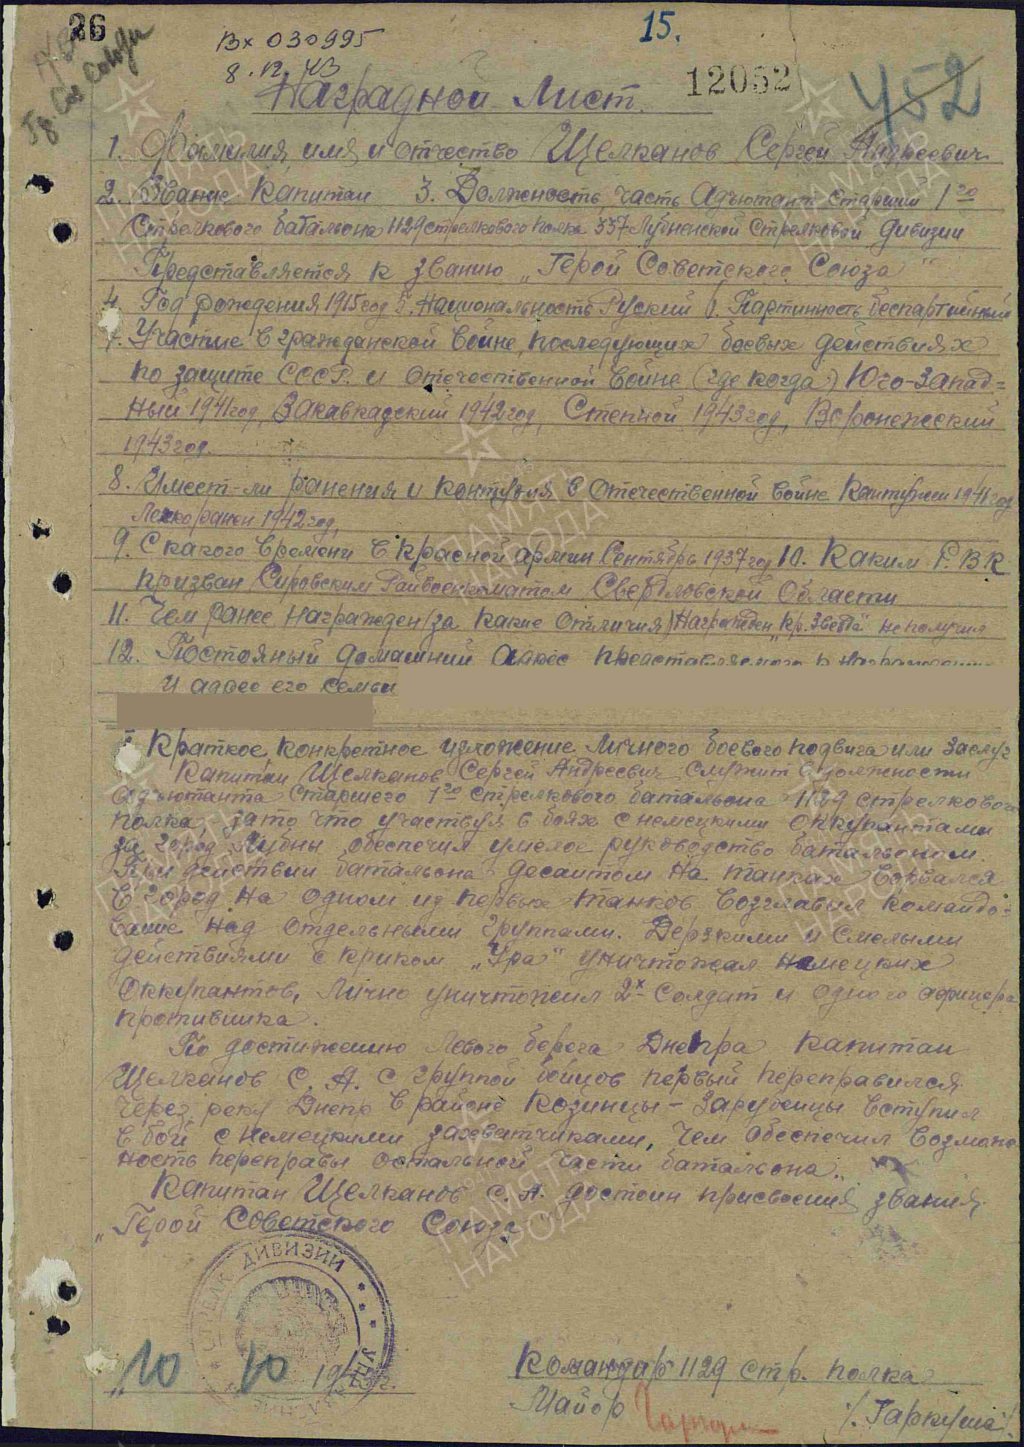 26
15.
Вх 030995
8.12.43
Гр. Сов Союза
12052
452
Наградной Лист.
1. Фамилия, имя и отчество Щелканов Сергей Андреевич
2. Звание Капитан 3. Должность, часть Адъютант старший 1го
Стрелкового батальона 1129 стрелкового полка 337 Лубненской Стрелковой дивизии
Представляется к званию „Герой Советского Союза"
4. Год рождения 1915 год 5. Национальность Руский 6. Партийность беспартийный
7. Участие в гражданской войне, последующих боевых действиях
по защите СССР и отечественной войне (где когда) Юго-Запад=
ный 1941 год, Закавкадский 1942 год, Степной 1943 год, Воронежский
1943 год.
8. Имеет-ли ранения и контузия в отечественной войне Кантужен 1941 год
Легко ранен 1942 год,
9. С какого времени в красной армии Сентябрь 1937 год 10. Каким Р.В.К
призван Сировским Райвоенкоматом Свердловской Области
11. Чем ранее награжден (за какие отличия) Награжден „Кр. Звезда" не получил
12. Постояный домашний адрес представляемого к награждению
и адрес его семьи
I Краткое, конкретное изложение личного боевого подвига или заслуг
Капитан Щелканов Сергей Андреевич служит в должности
адъютанта старшего 1го стрелкового батальона 1129 стрелкового
полка, за то что участвуя в боях с немецкими оккупантами
за город Лубны обеспечил умелое руководство батальоном.
При действии батальона десантом на танках ворвался
в город на одном из первых танков возглавил командо-
вание над отдельными группами. Дерзкими и смелыми
действиями с криком „Ура" уничтожал немецких
оккупантов, лично уничтожил 2х солдат и одного офицера
противника.
По достижению левого берега Днепра капитан
Щелканов С. А. с группой бойцов первый переправился
через реку Днепр в районе Козинцы – Зарубенцы вступил
в бой с немецкими захватчиками, чем обеспечил возмож-
ность переправы остальной части батальона.
Капитан Щелканов С. А. достоин присвоения звания
„Герой Советского Союза"
СТРЕЛК ДИВИЗИИ
„10 10 1943 г.
Командир 1129 стр. полка
Майор /Гаркуша/